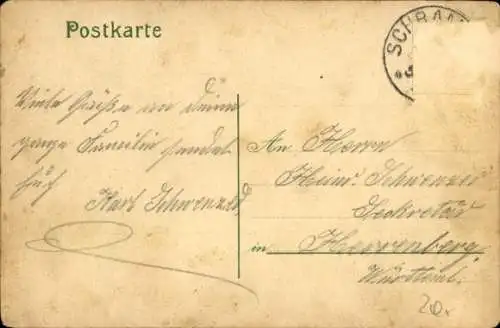 Postkarte
SCHRA
Viele Grüße an Deine
ganze Familie sendet
Euch
Karl Schwenzer
An Herrn
Heinr. Schwenzer
Sekretär
in Herrenberg
Württembg.
20.